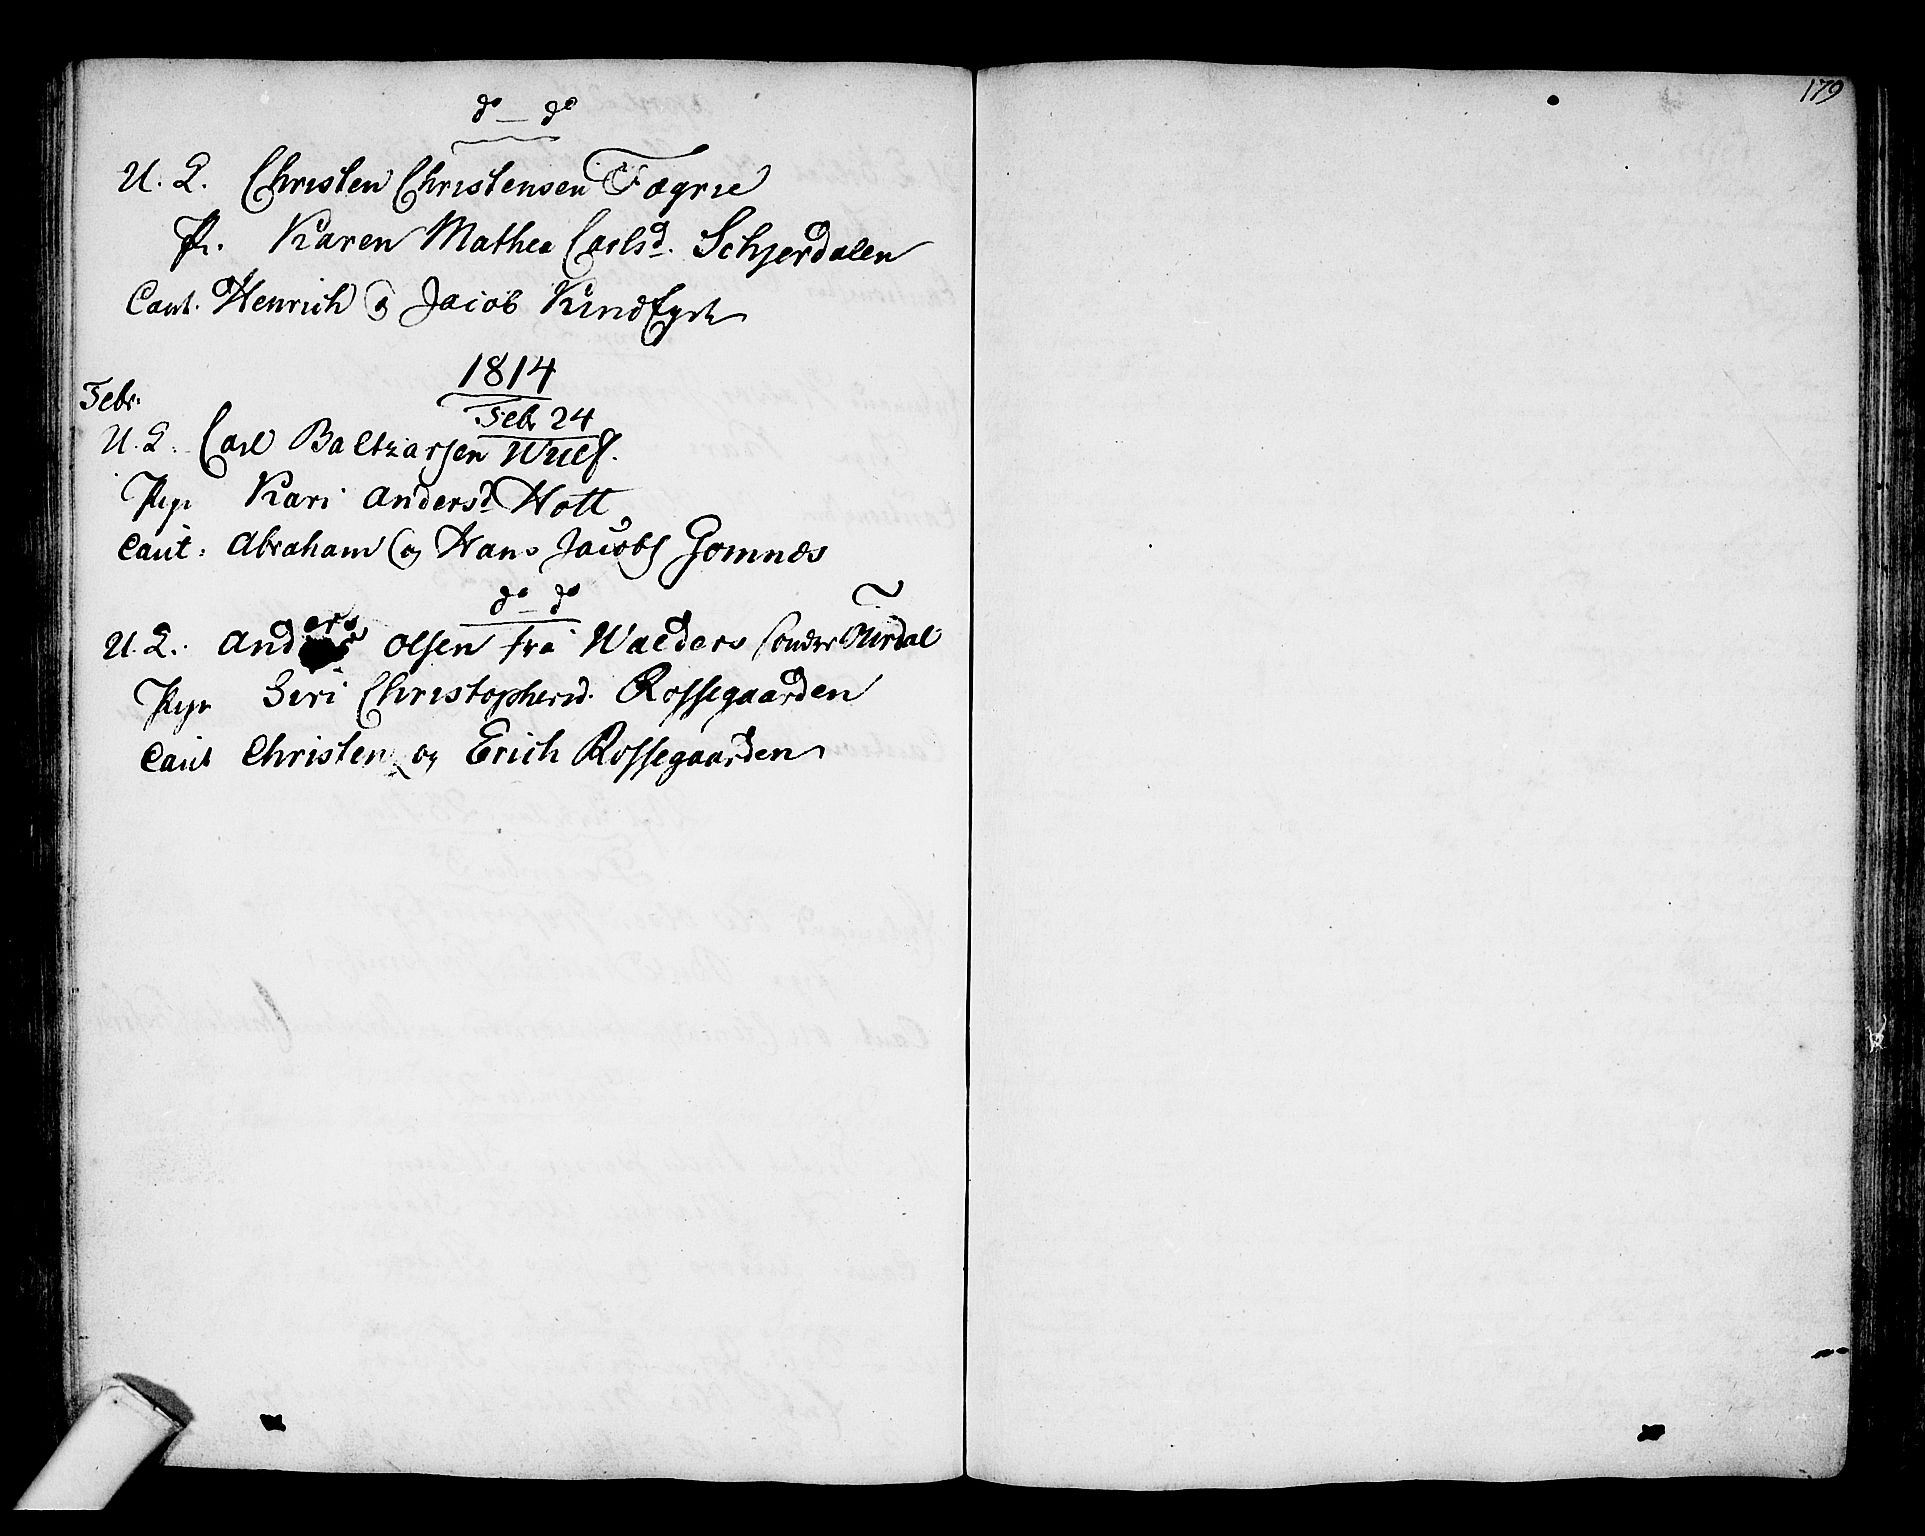 do — do
U. K. Christen Christensen Fægrie
P. Karen Mathea Carlsd. Schjerdalen
Caut. Henrich & Jacob Kindfyrk
1814
Febr.
Febr 24
U. K. Carl Baltzarsen Wulf.
Pige Kari Andersd Hott
Caut: Abraham og Hans Jacobs Gomnæs
do — do
U. K. Anders Olsen fra Walders Sønder
Pige Siri Christophersd. Rossegaarden
Caut Christen og Erich Rossegaarden
179